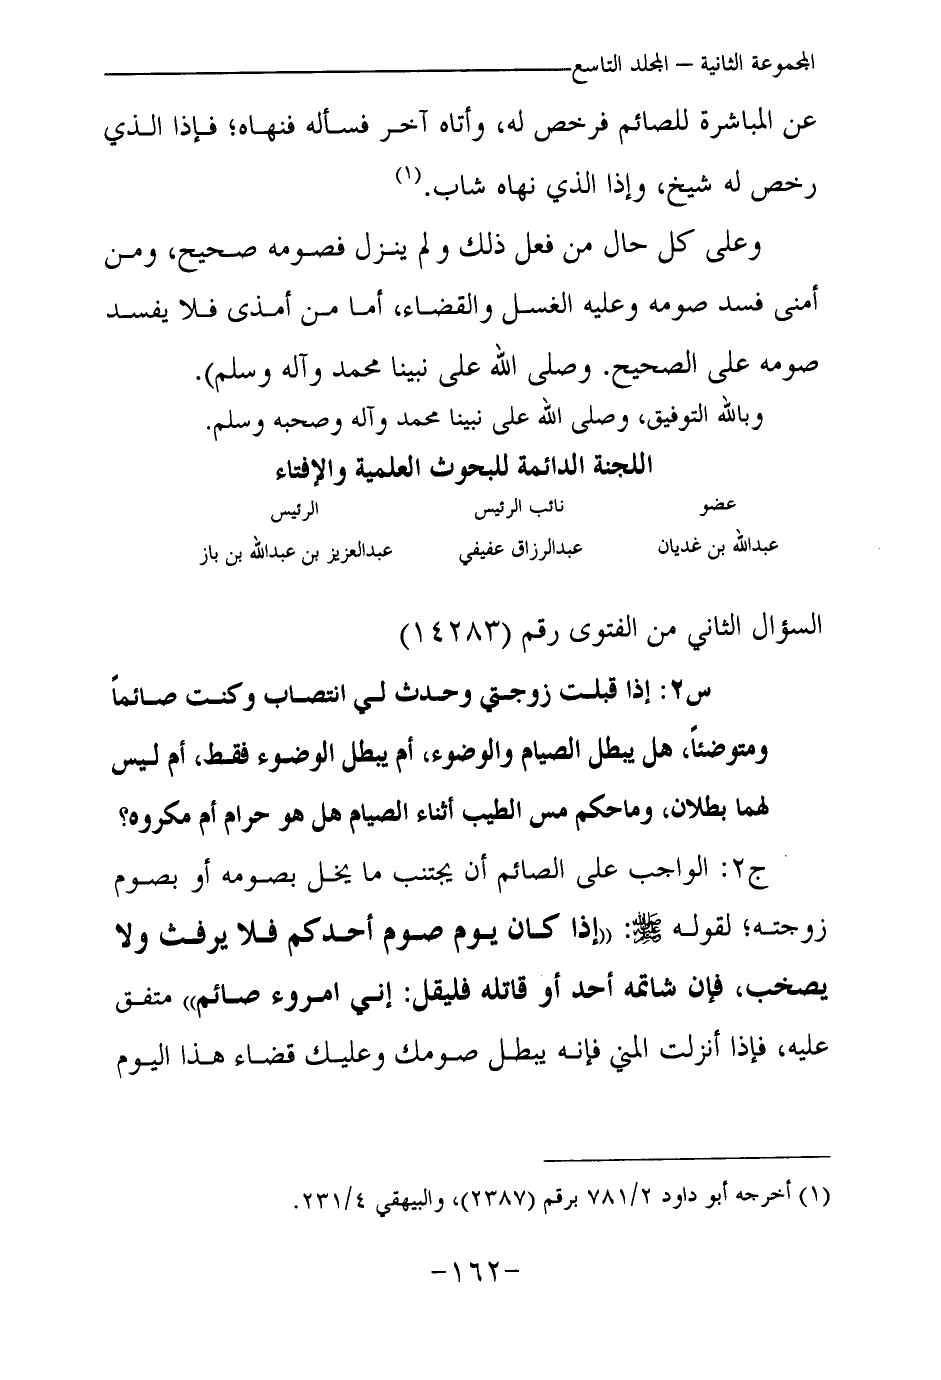 المجموعة الثانية – المجلد التاسع
عن المباشرة للصائم فرخص له، وأتاه آخر فسأله فنهاه؛ فإذا الذي
رخص له شيخ، وإذا الذي نهاه شاب.(١)
وعلى كل حال من فعل ذلك ولم ينزل فصومه صحيح، ومن
أمنى فسد صومه وعليه الغسل والقضاء، أما من أمذى فلا يفسد
صومه على الصحيح. وصلى الله على نبينا محمد وآله وسلم).
وبالله التوفيق، وصلى الله على نبينا محمد وآله وصحبه وسلم.
اللجنة الدائمة للبحوث العلمية والإفتاء
عضو نائب الرئيس الرئيس
عبدالله بن غديان عبدالرزاق عفيفي عبدالعزيز بن عبدالله بن باز
السؤال الثاني من الفتوى رقم (١٤٢٨٣)
س٢: إذا قبلت زوجتي وحدث لي انتصاب وكنت صائماً
ومتوضئاً، هل يبطل الصيام والوضوء، أم يبطل الوضوء فقط، أم ليس
لهما بطلان، وماحكم مس الطيب أثناء الصيام هل هو حرام أم مكروه؟
ج٢: الواجب على الصائم أن يجتنب ما يخل بصومه أو بصوم
زوجته؛ لقوله ﷺ: ((إذا كان يوم صوم أحدكم فلا يرفث ولا
يصخب، فإن شاتمه أحد أو قاتله فليقل: إني امروء صائم)) متفق
عليه، فإذا أنزلت المني فإنه يبطل صومك وعليك قضاء هذا اليوم
(١) أخرجه أبو داود ٧٨١/٢ برقم (٢٣٨٧)، والبيهقي ٢٣١/٤.
-١٦٢-